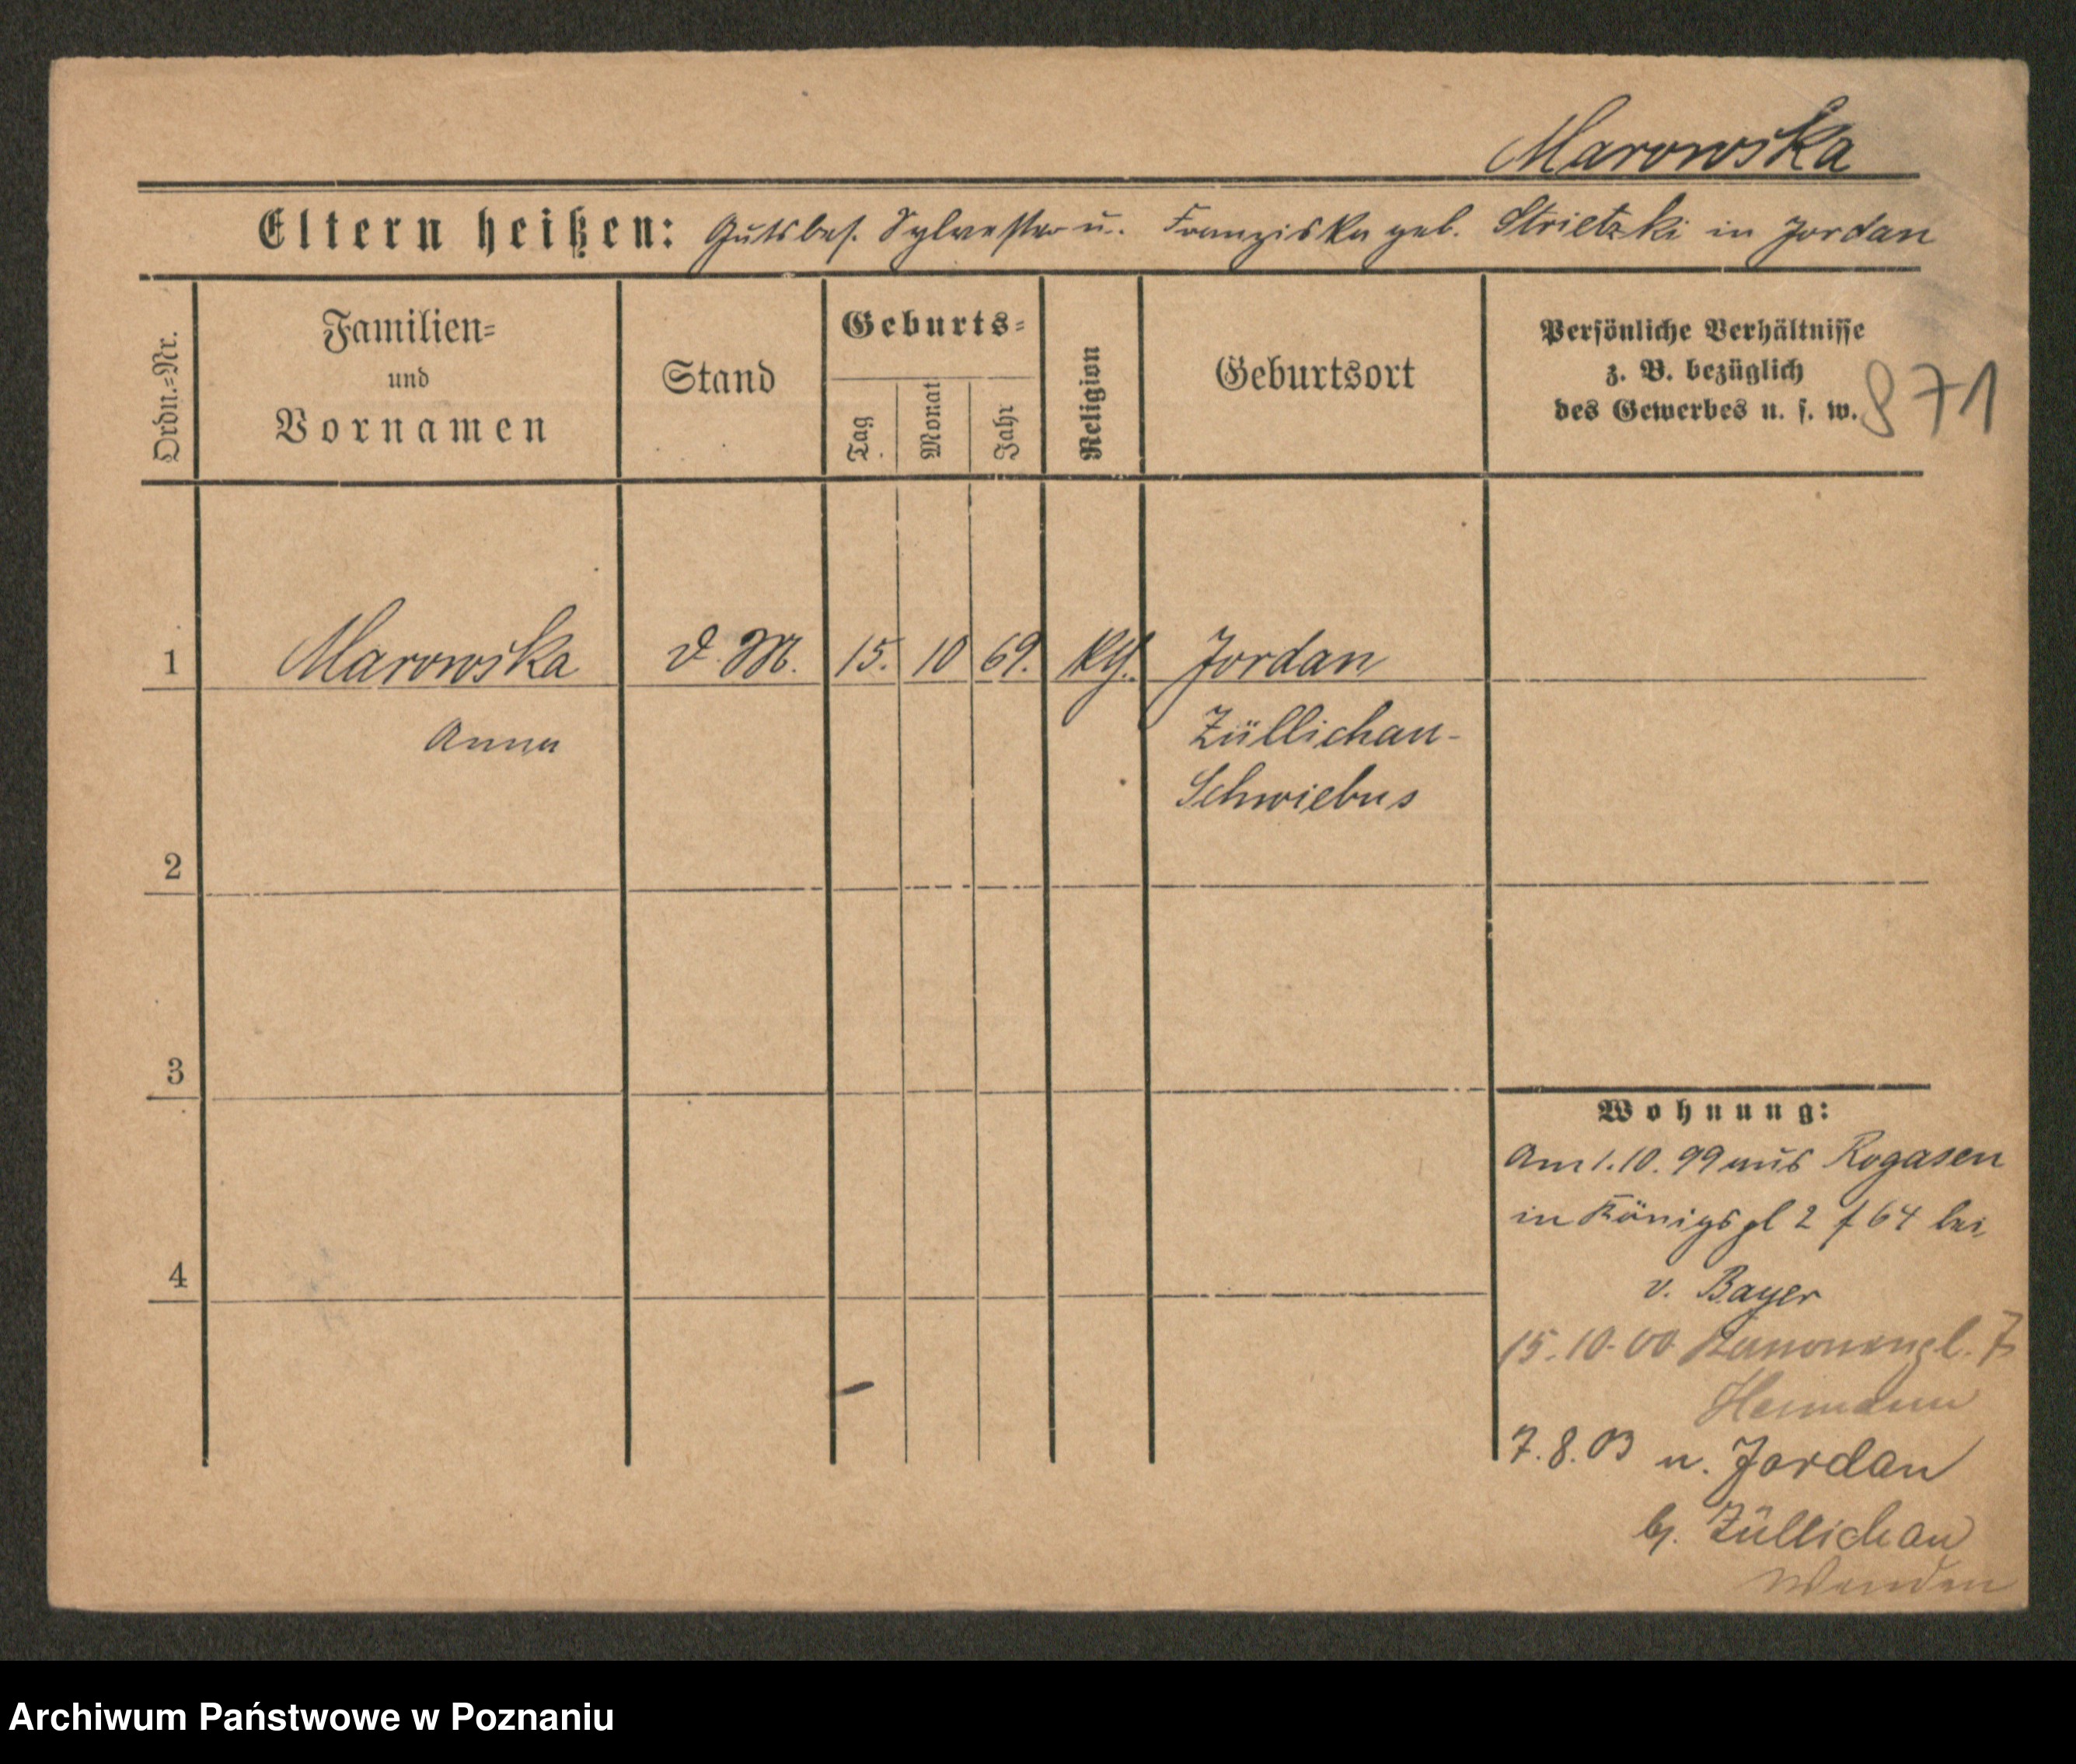 Marowska
Eltern heißen: Gutsbes. Sylvester u. Franziska geb. Strietzki in Jordan
Ordn.=Nr.
Familien=
und
Vornamen
Stand
Geburts=
Tag
Monat
Jahr
Religion
Geburtsort
Persönliche Verhältnisse
z. B. bezüglich
des Gewerbes u. s. w.
871
1 Marowska d. M. 15. 10 69. Jordan
Anna Züllichau-
Schwiebus
2
3
4
Wohnung:
Am 1.10.99 aus Rogasen
in Königspl 2 64 bei
v. Bayer
15.10.00 Kanonenpl. 7
7.8.03 n. Jordan
b. Züllichau
Archiwum Państwowe w Poznaniu